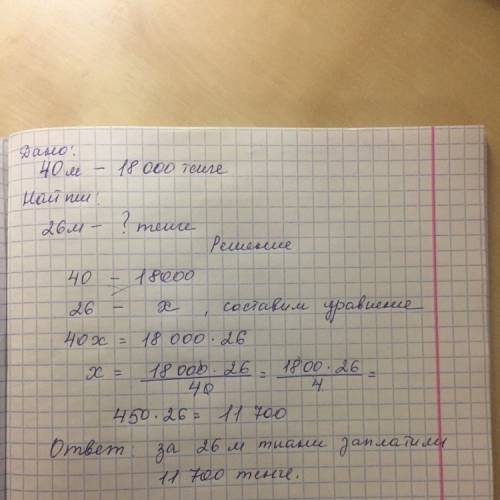 Дано:
40м – 18 000 тенге
Найти:
26м – ? тенге
Решение
40 – 18000
26 – x , составим уравнение
40x = 18 000 · 26
x = 18 000 · 26 / 40 = 1800 · 26 / 4 =
450 · 26 = 11 700
Ответ: за 26 м ткани заплатили
11 700 тенге.